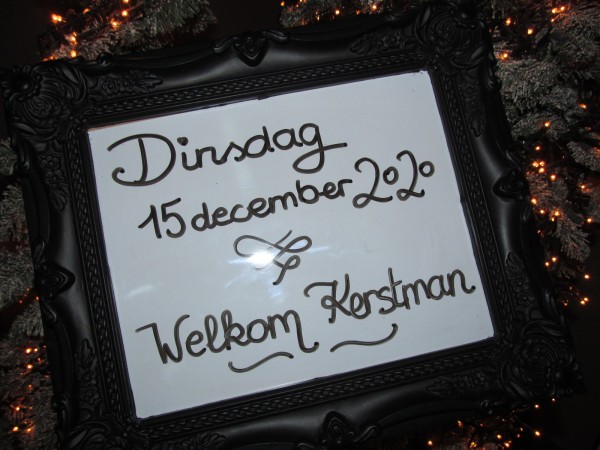 Dinsdag
15 december 2020
Welkom Kerstman